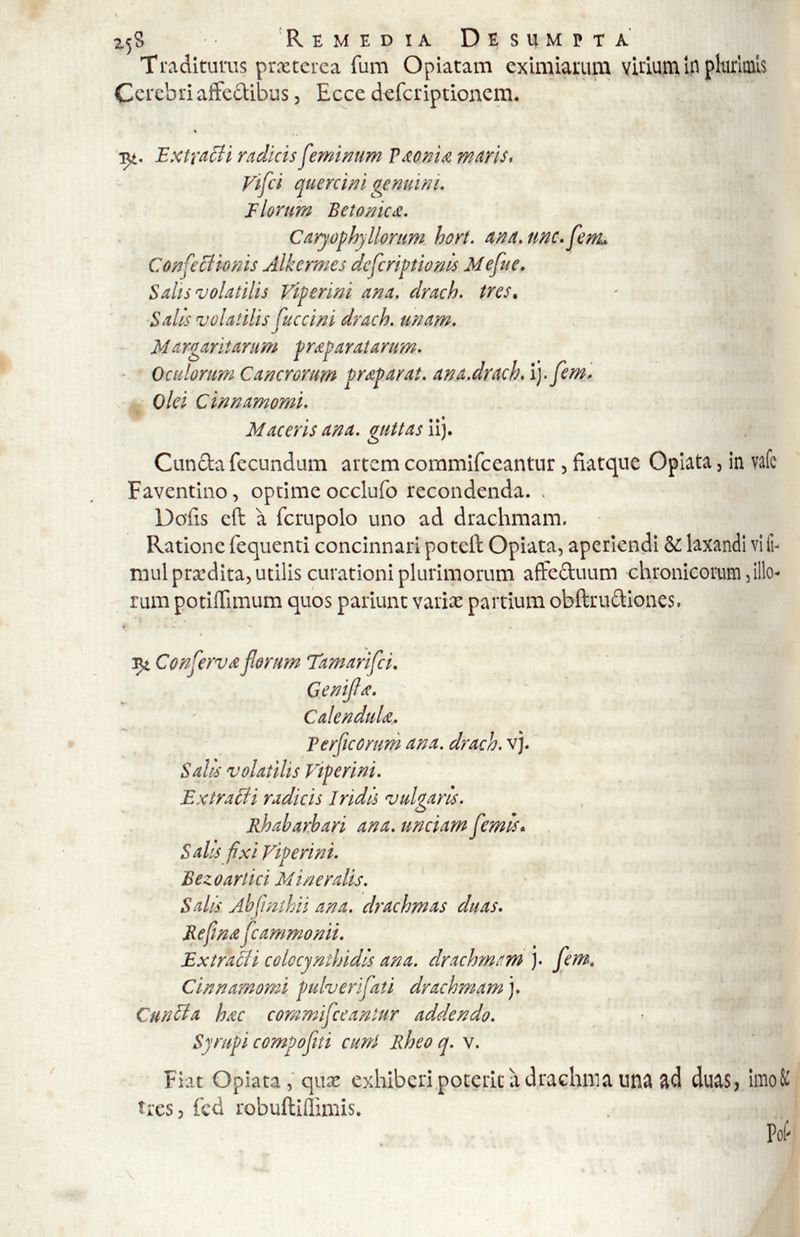 258 REMEDIA DESUMPTA
Traditurus præterea ſum Opiatam eximiarum virium in plurimis
Cerebri affectibus, Ecce deſcriptionem.
℞. Extracti radicis ſeminum Pæoniæ maris.
Viſci quercini genuini.
Florum Betonicæ.
Caryophyllorum hort. ana. unc. ſem.
Confectionis Alkermes deſcriptionis Meſue.
Salis volatilis Viperini ana. drach. tres.
Salis volatilis ſuccini drach. unam.
Margaritarum præparatarum.
Oculorum Cancrorum præparat. ana. drach. ij. ſem.
Olei Cinnamomi.
Maceris ana. guttas iij.
Cuncta ſecundum artem commiſceantur, fiatque Opiata, in vaſe
Faventino, optime occluſo recondenda.
Doſis eſt à ſcrupolo uno ad drachmam.
Ratione ſequenti concinnari poteſt Opiata, aperiendi & laxandi vi ſi-
mul prædita, utilis curationi plurimorum affectuum chronicorum, illo-
rum potiſſimum quos pariunt variæ partium obſtructiones.
℞ Conſervæ florum Tamariſci.
Geniſtæ.
Calendulæ.
Perſicorum ana. drach. vj.
Salis volatilis Viperini.
Extracti radicis Iridis vulgaris.
Rhabarbari ana. unciam ſemis.
Salis fixi Viperini.
Bezoartici Mineralis.
Salis Abſinthii ana. drachmas duas.
Reſinæ ſcammonii.
Extracti colocynthidis ana. drachmam j. ſem.
Cinnamomi pulveriſati drachmam j.
Cuncta hæc commiſceantur addendo.
Syrupi compoſiti cum Rheo q. v.
Fiat Opiata, quæ exhiberi poterit à drachma una ad duas, imo &
tres, ſed robuſtiſſimis.
Poſ-